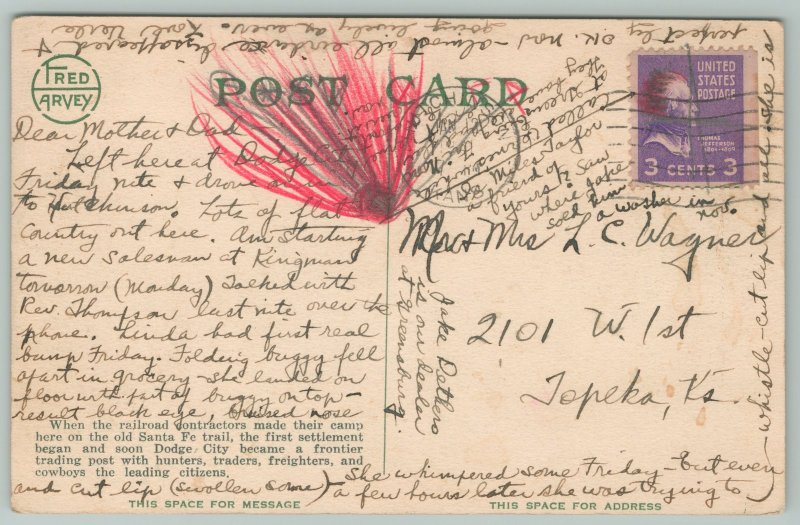 FRED
HARVEY
POST CARD
UNITED
STATES
POSTAGE
THOMAS
JEFFERSON
1801-1809
3 CENTS 3
Dear Mother & Dad –
Left here at Dodge City
Friday nite & drove on
to Hutchinson. Lots of flat
country out here. Am starting
a new salesman at Kingman
tomorrow (Monday) Talked with
Rev. Thompson last nite over the
phone. Linda had first real
bump Friday. Folding buggy fell
apart in grocery – she landed on
floor with part of buggy on top –
result black eye, bruised nose
and cut lip (swollen some) – She whimpered some Friday – but even
a few hours later she was trying to
whistle – cut lip and all. She is
perfectly OK now – almost all evidence disappeared &
going lively as ever.
When the railroad contractors made their camp
here on the old Santa Fe trail, the first settlement
began and soon Dodge City became a frontier
trading post with hunters, traders, freighters, and
cowboys the leading citizens.
THIS SPACE FOR MESSAGE
Called
Miles Taylor
a friend of
yours & saw
where Jake
sold him
a washer in
Nov.
Jake Dethero
is our dealer
at Greensburg.
Mr & Mrs L. C. Wagner
2101 W. 1st
Topeka, Ks.
THIS SPACE FOR ADDRESS